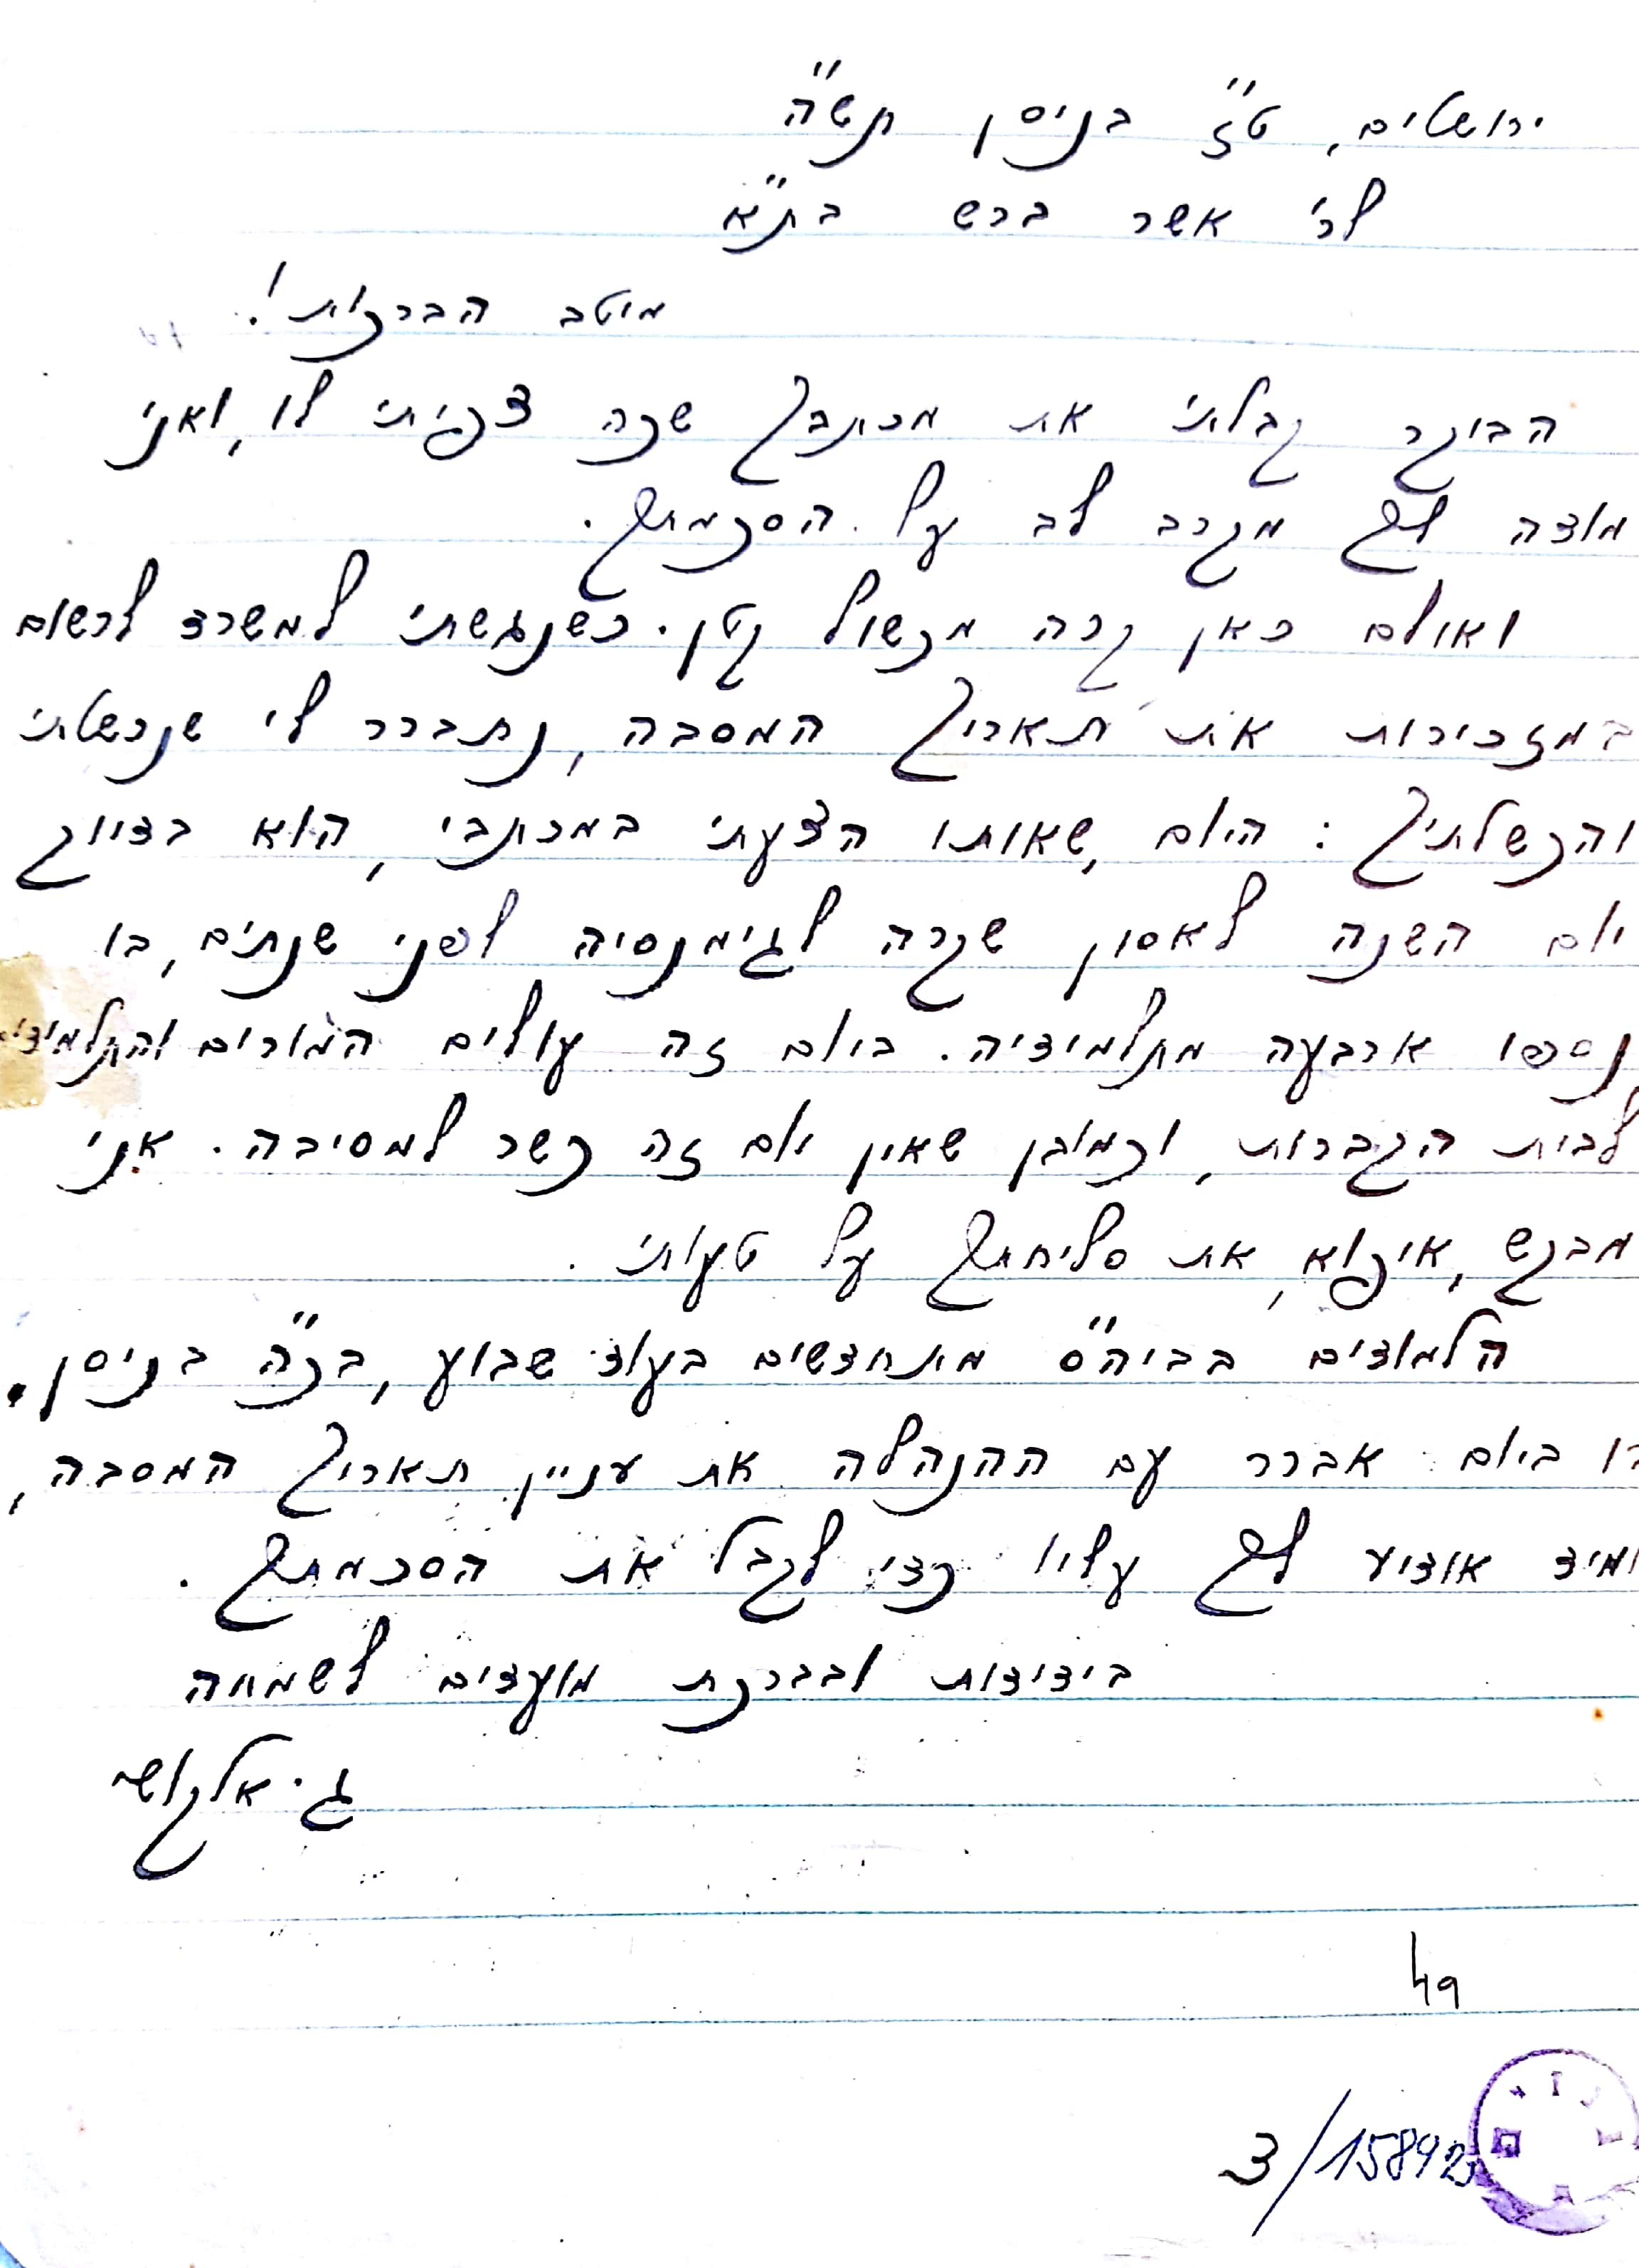 ירושלים, ט"ז בניסן תש"ה
לר' אשר ברש בת"א
מיטב הברכות!
הבוקר קבלתי את מכתבך שכה צפיתי לו, ואני
מודה לך מקרב לב על הסכמתך.
ואולם כאן קרה מכשול קטן. כשנגשתי למשרד לרשום
במזכירות את תאריך המסבה, נתברר לי שנכשלתי
והכשלתיך: היום, שאותו הצעתי במכתבי, הוא בדיוק
יום השנה לאסון שקרה לגימנסיה לפני שנתים, בו
נספו ארבעה מתלמידיה. ביום זה עולים המורים והתלמידי
לבית הקברות, וכמובן שאין יום זה כשר למסיבה. אני
מבקש, איפוא, את סליחתך על טעותי.
הלמודים בביה"ס מתחדשים בעוד שבוע, בכ"ה בניסן.
בו ביום אברר עם ההנהלה את עניין תאריך המסבה,
ומיד אודיע לך עליו כדי לקבל את הסכמתך.
בידידות ובברכת מועדים לשמחה
ג. אלקושי
49
3/15892